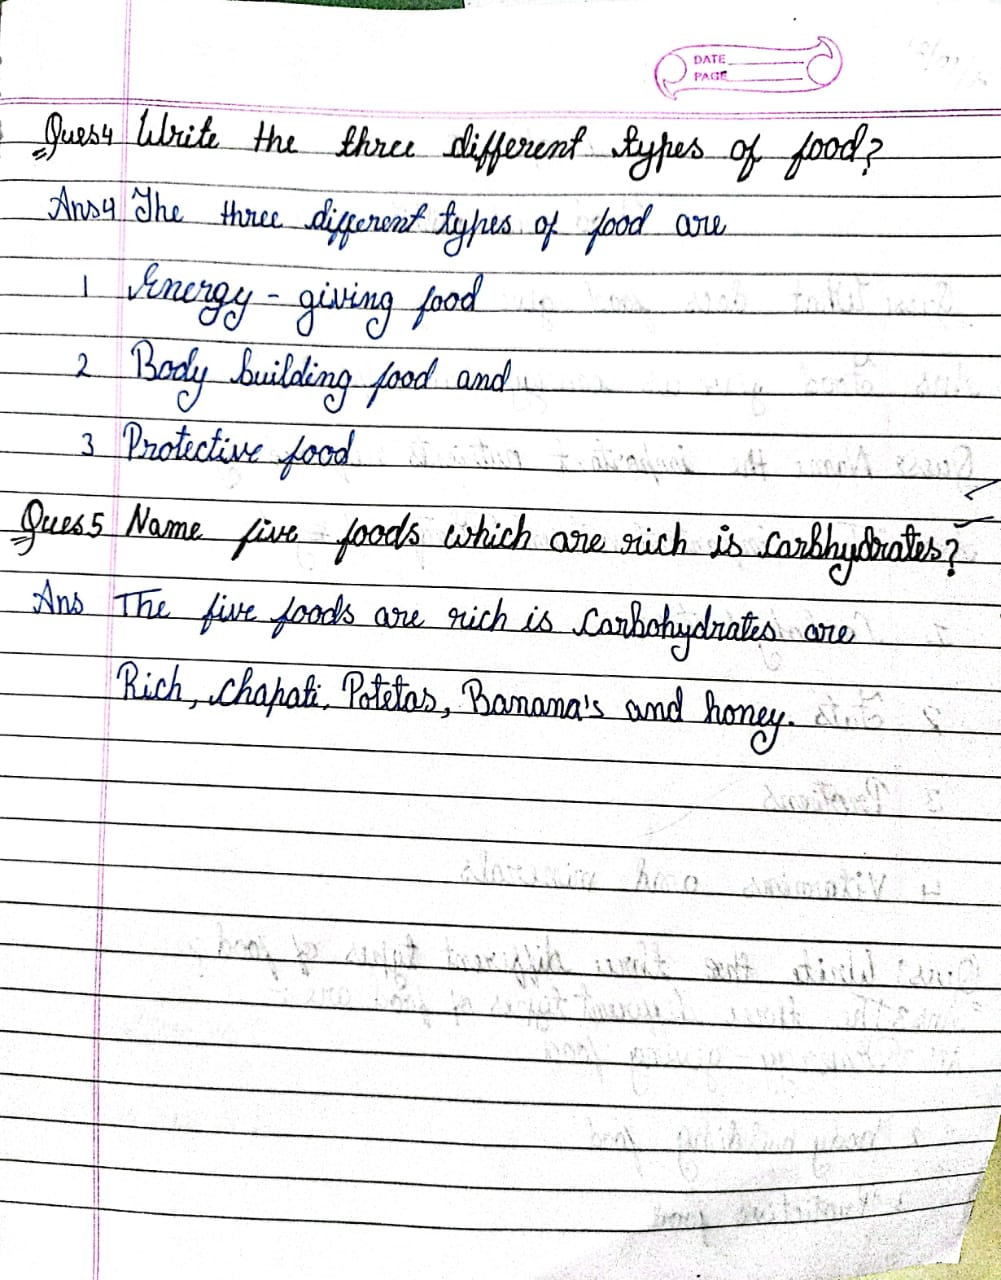 DATE
PAGE
Ques4 Write the three different types of food?
Ans4 The three different types of food are
1 Energy - giving food
2 Body building food and
3 Protective food
Ques5 Name five foods which are rich is carbhydrates?
Ans The five foods are rich is carbohydrates are
Rich, chapati, Potetas, Banana's and honey.